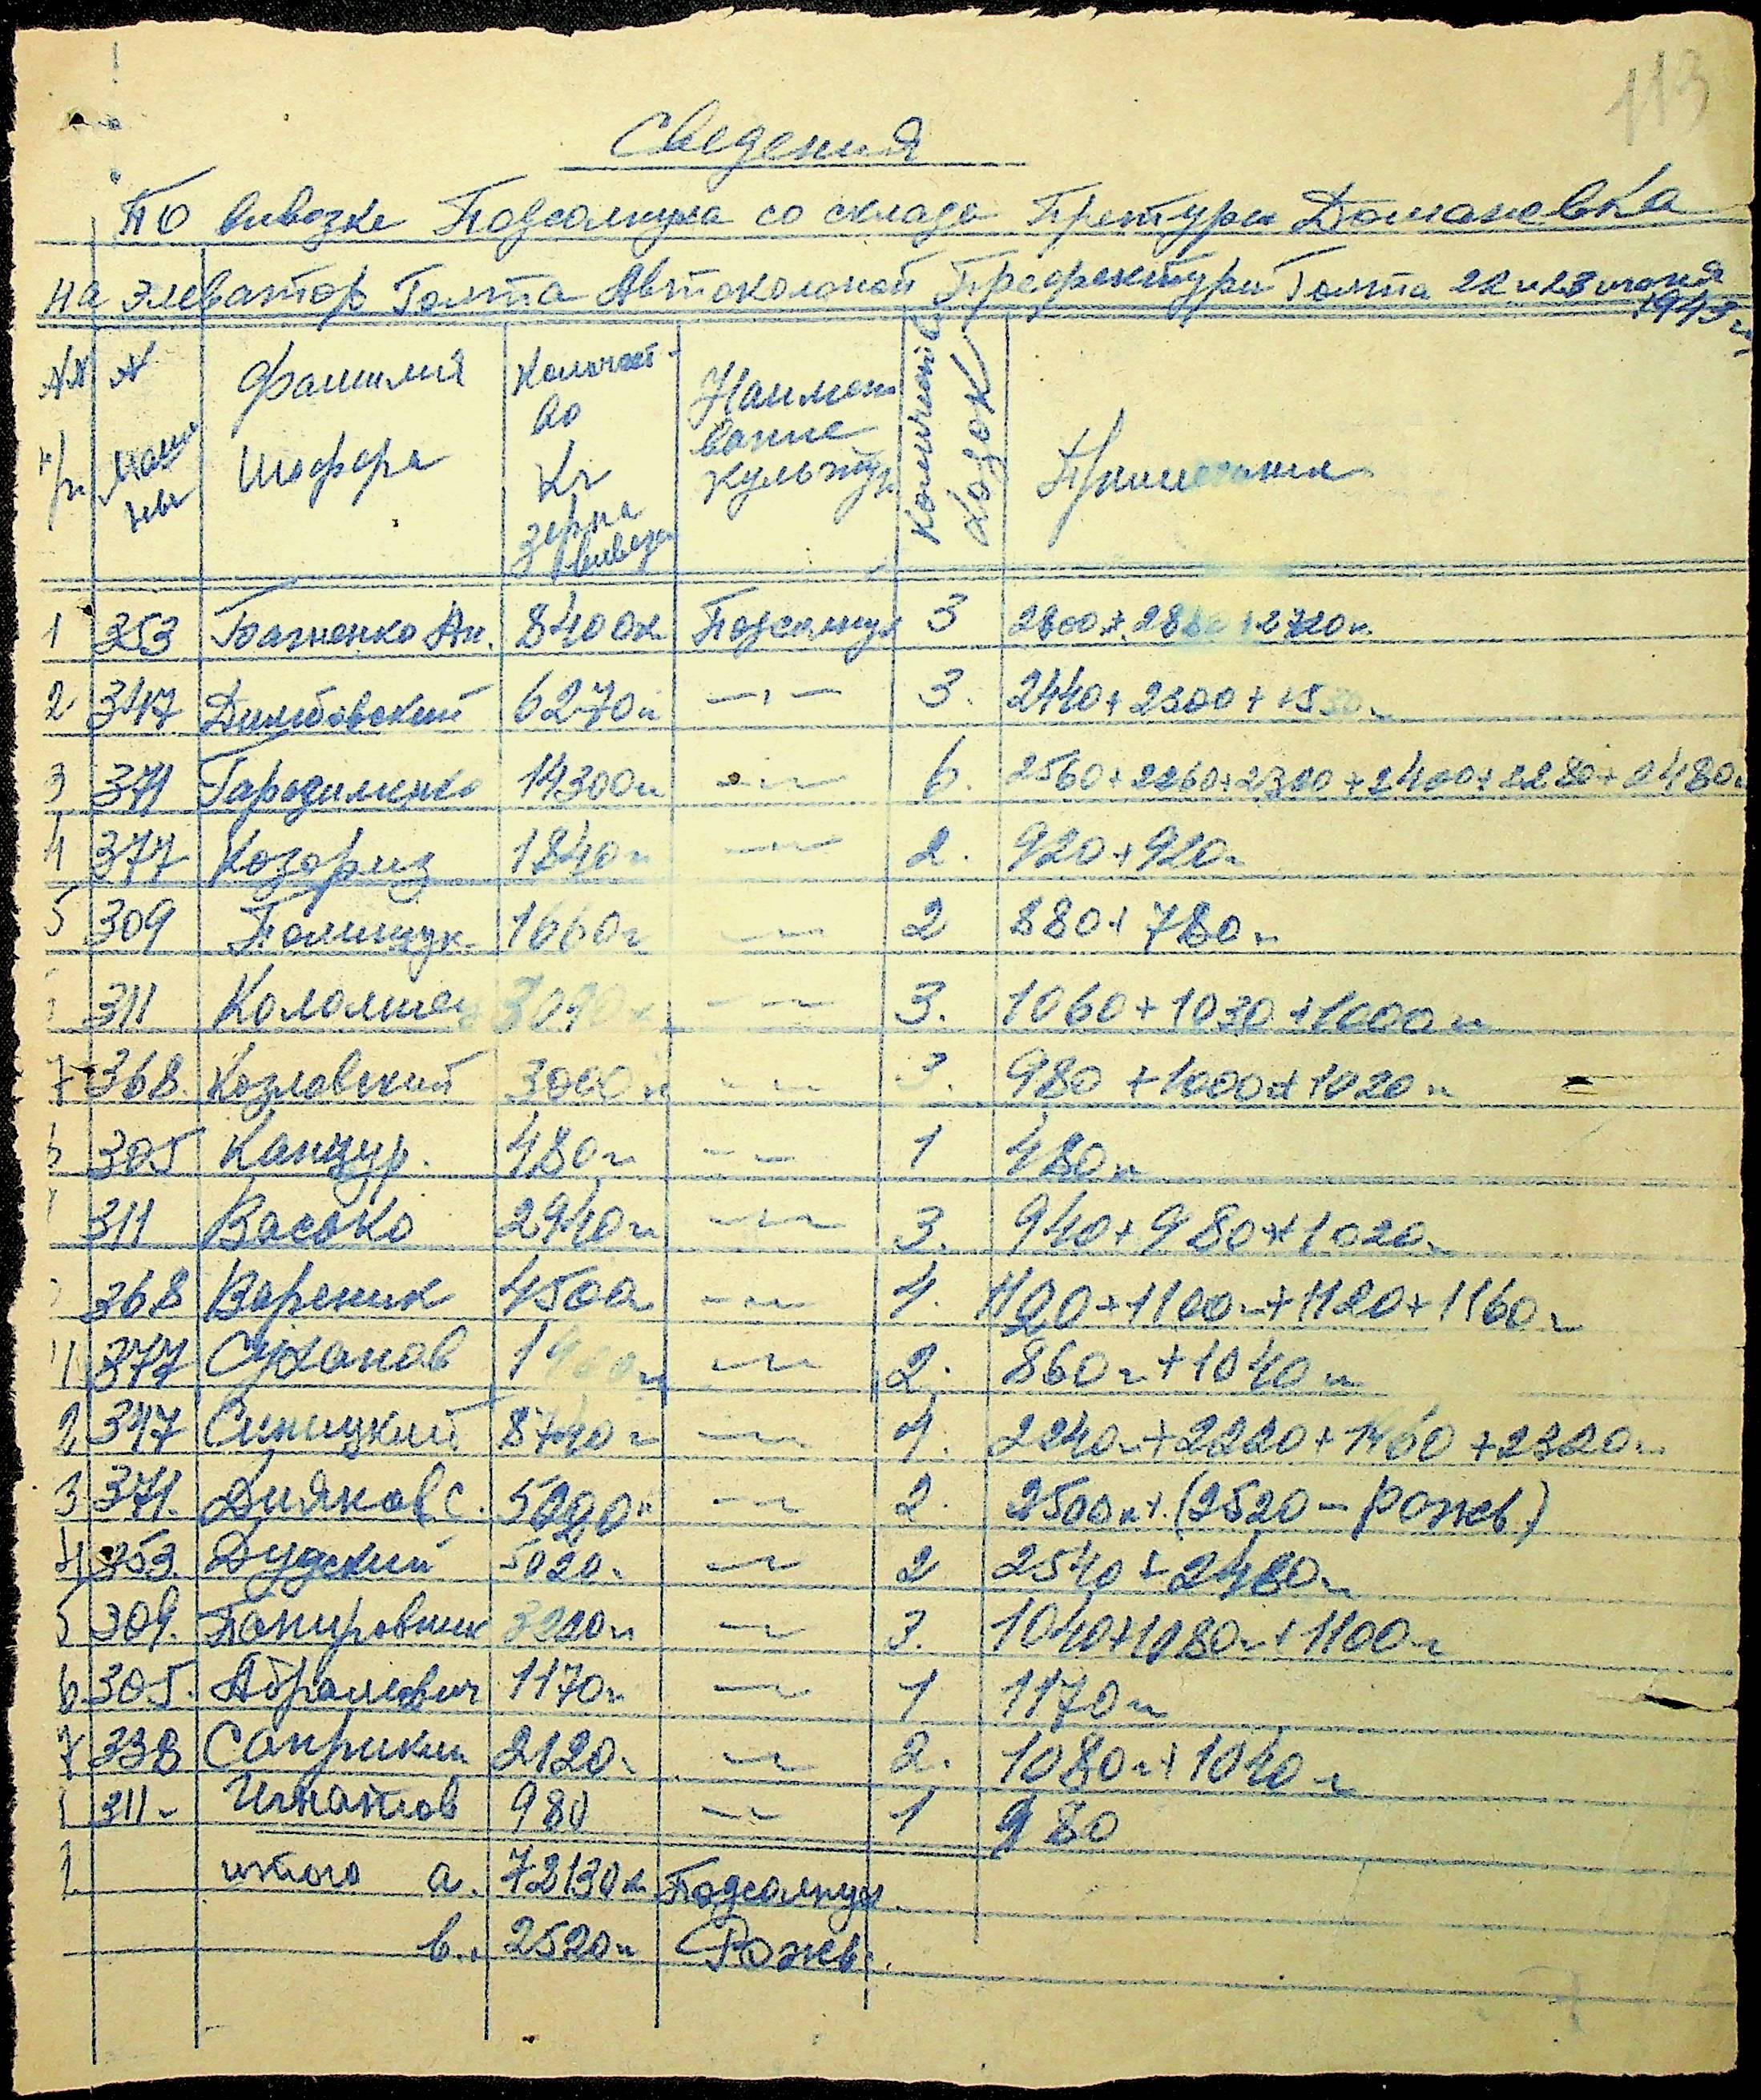 113
Сведения
По вивозке Подсолнуха со склада Претури Домановка
на элеватор Голта Автоколоной Префектури Голта 22 и 23 июня
1943 г.
№№ п/п № маши ны Фамилия Шофера Количест во Кг зерна вивез. Наимено вание культур Количество ходок Примечание
1 353 Ан. 8400к Подсолнух 3 2800+28 +2720к
2 347 Дилтовский 6270к —〃— 3. 2440+2300+153
3 371 14300к —〃— 6. 2560+2260+2300+2400+2280+2480к
4 377 Козориз 1840к —〃— 2. 920+920к
5 309 Полищук 1660к —〃— 2 880+780к
311 Коломиец 3090к —〃— 3. 1060+1030+1000к
7 368. Козловский 3000к —〃— 3. 980+1000+1020к
305 Канцур. 480к —〃— 1 480к
311 Васько 2940к —〃— 3. 940+980+1020к
368 Вареник 4500к —〃— 4. 1120+1100к+1120+1160к
11 377 Суханов 1 —〃— 2. 860к+1040к
2 347 Синицкий 8740к —〃— 4. 2240к+2220+1460+2320к
3 371. Дияков С. 5020к —〃— 2. 2500к+(2520-рожь)
4 353. Дудский 5020к —〃— 2 2540+2480к
5 309. Папировник 3220к —〃— 3. 1040+1080к+1100к
6 305. Абрамович 1170к —〃— 1 1170к
7 338 Саприкин 2120к —〃— 2. 1080к+1040к
311 Игнатов 980 —〃— 1 980
итого а. 72130к Подсолнух
в. 2520к Рожь.